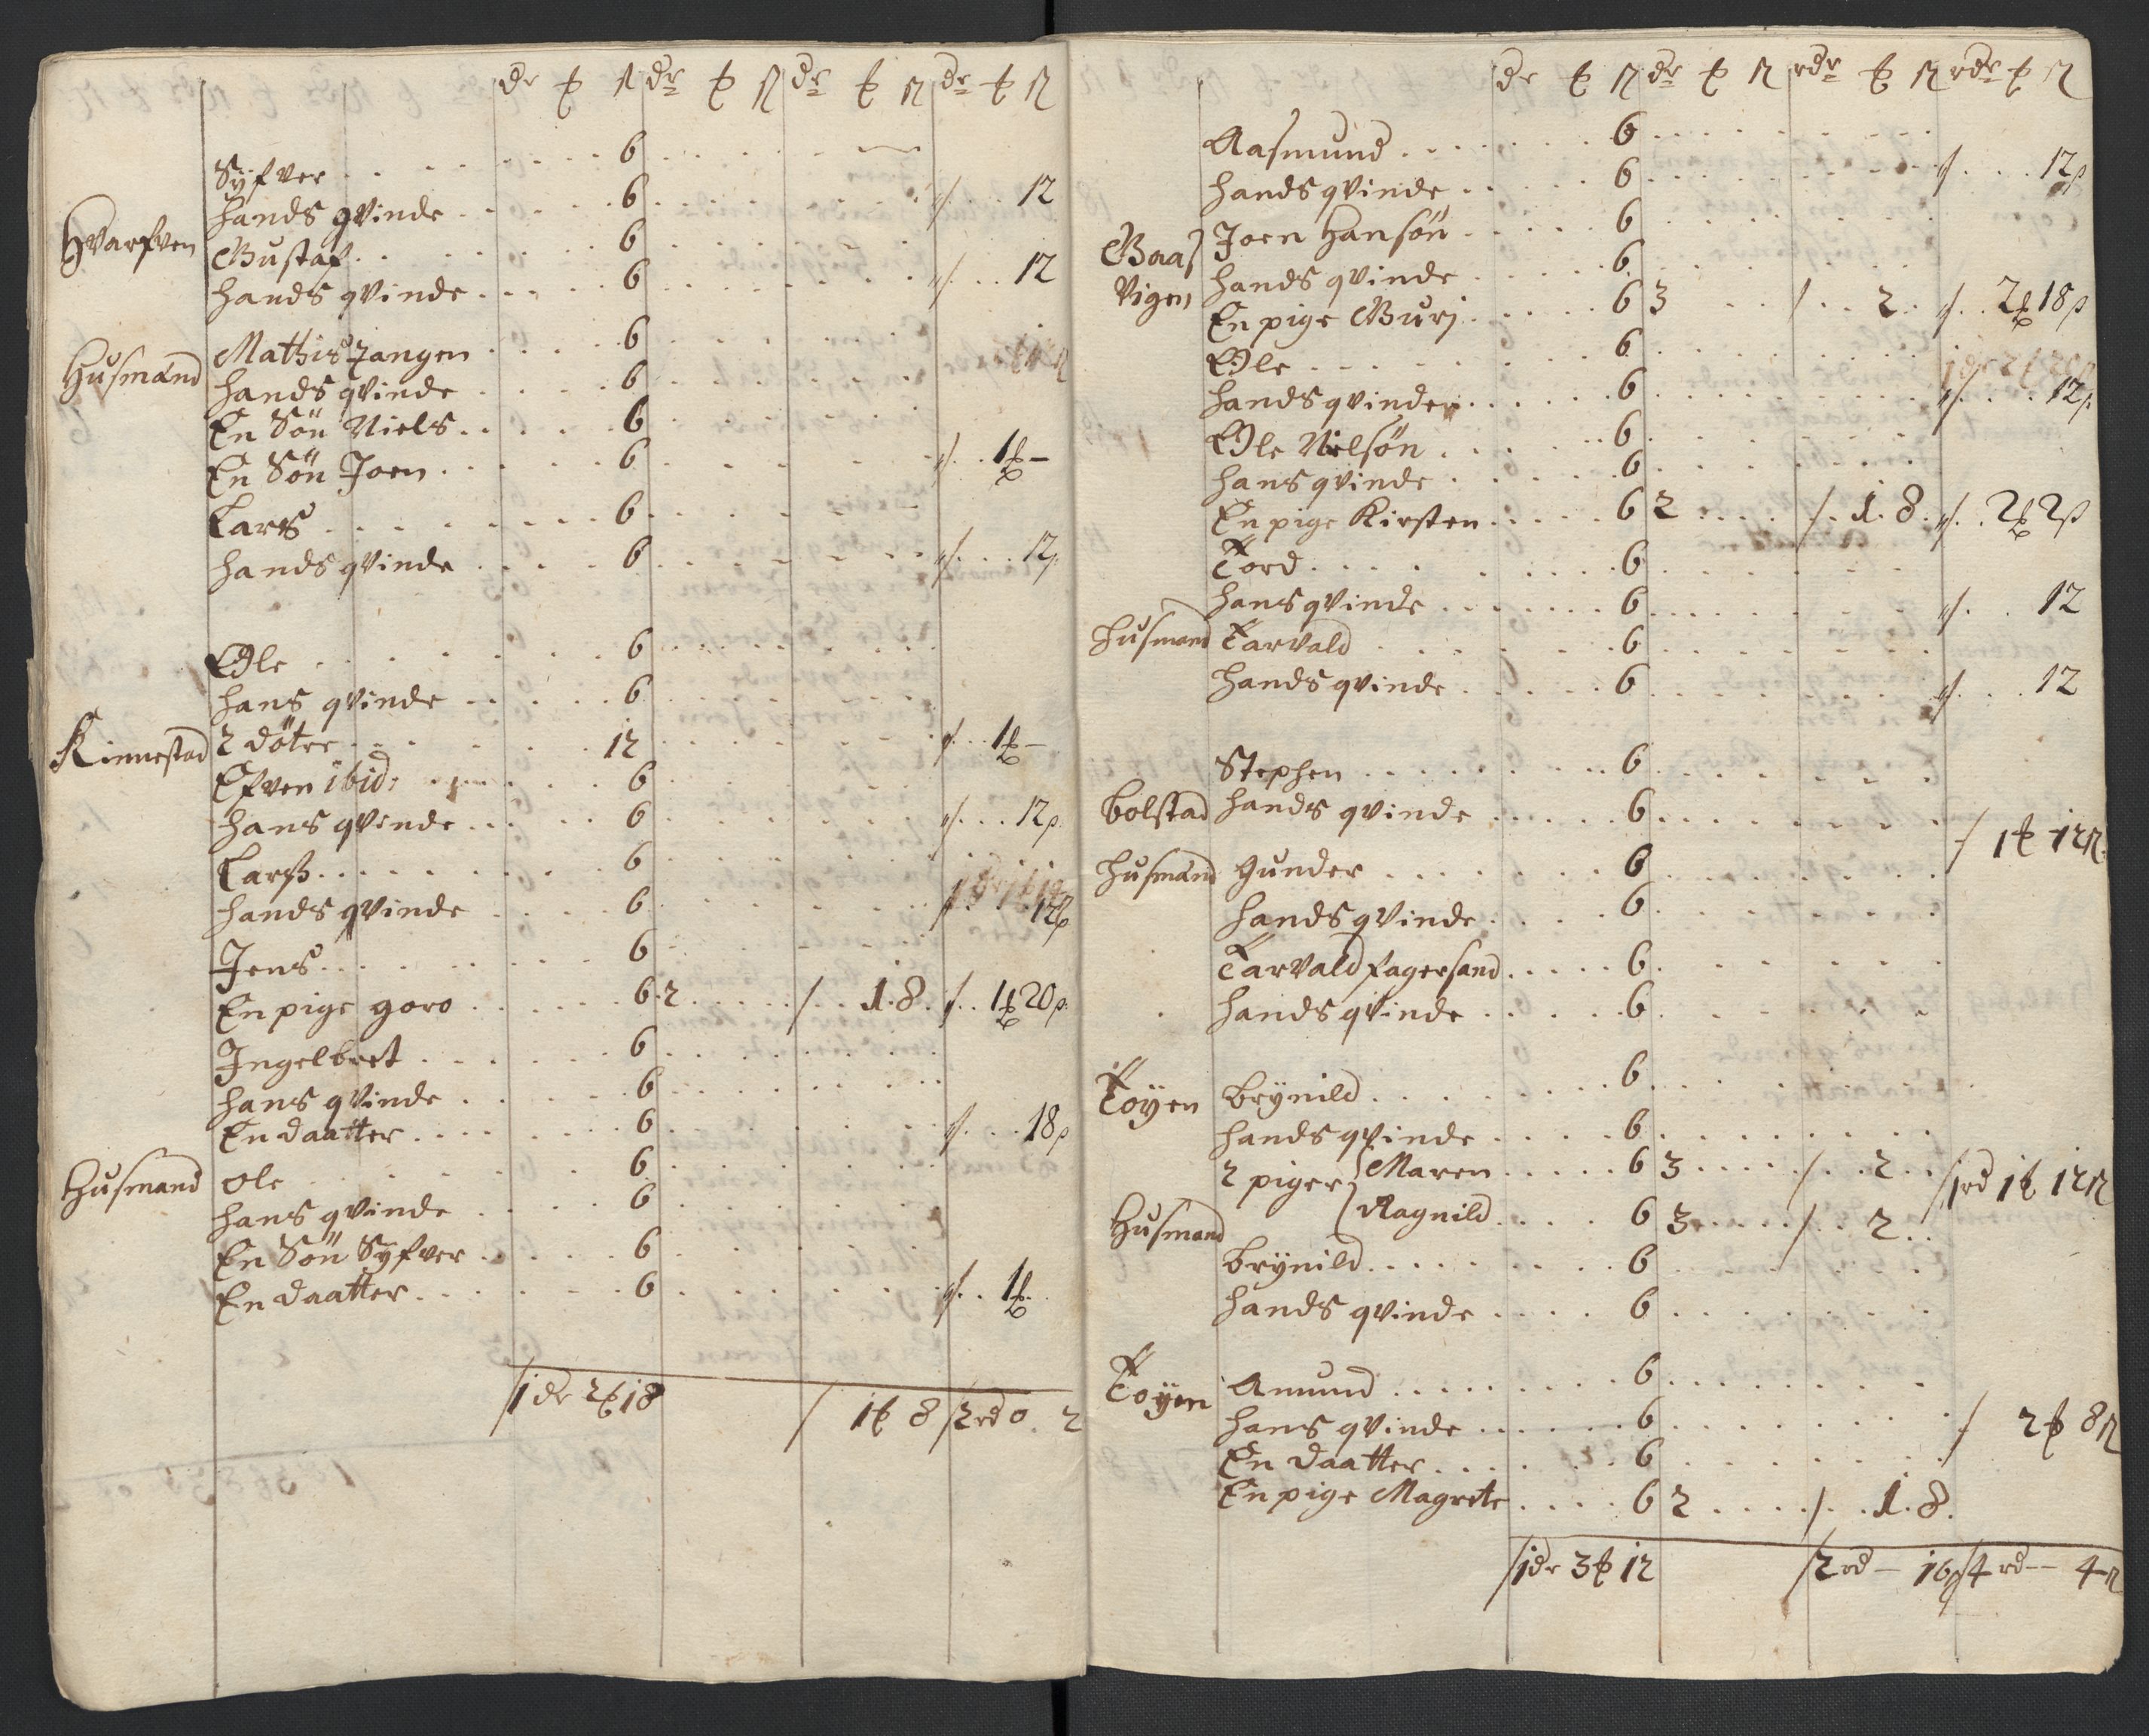 dr ₺ ß dr ₺ ß dr ₺ ß dr ₺ ß
Syfver . . . 6
hands qvinde . . . 6 . . . 12
Hvarfven Gustaf . . . 6
hands qvinde . . . 6 . . . 12
Husmand Mathis Tangen . . . 6
hands qvinde . . . 6
En Sön Niels . . . 6
En Sön Joen . . . 6 . . . 1₺ –
Lars . . . 6
hands qvinde . . . 6 . . . 12ß
Ole . . . 6
hans qvinde . . . 6
Kinnestad 2 döttre . . . 12 . . . 1₺ –
Efven ibid: . . . 6
hans qvinde . . . 6 . . . 12ß
Larß . . . 6
hands qvinde . . . 6 . . . 12ß
Jens . . . 6
En pige goro . . . 6 2 . . . / . 1 . 8 . . 1₺ 20ß
Ingelbret . . . 6
hans qvinde . . . 6
En daatter . . . 6 . . . 18ß
Husmand Ole . . . 6
hans qvinde . . . 6
En Sön Syfver . . . 6
En daatter . . . 6 . . . 1₺
/1 dr 2₺ 18 / 1₺ 8 /2 rd 0 . 2
dr ₺ ß dr ₺ ß rdr ₺ ß rdr ₺ ß
Aasmund . . . 6
hands qvinde . . . 6 . . . 12ß
Baas Joen Hansön . . . 6
Vigen hands qvinde . . . 6
En pige Guri . . . 6 3 . . / . 2 . . 2₺ 18ß
Ole . . . 6
hands qvinde . . . 6 . . . 12ß
Ole Nielsön . . . 6
hans qvinde . . . 6
En pige Kirsten . . . 6 2 . . . / . 1 . 8 . . 2₺ 2ß
Tord . . . 6
hans qvinde . . . 6 . . . 12
Husmand Tarvald . . . 6
hands qvinde . . . 6 . . . 12
Stephen . . . 6
Bolstad hands qvinde . . . 6 . . . / 1₺ 12ß
Husmand Gunder . . . 6
hands qvinde . . . 6
Tarvald fagersand . . . 6
hands qvinde . . . 6
Töyen Brynild . . . 6
hands qvinde . . . 6
2 piger { Maren . . . 6 3 . . . / . 2 . . /1rd 1₺ 12ß
{ Ragnild . . . 6 3 . . . / . 2 . .
Husmand Brynild . . . 6
hands qvinde . . . 6
Toyen Amund . . . 6
hans qvinde . . . 6 . . . / 2₺ 8ß
En daatter . . . 6
En pige Magrete . . . 6 2 . . . / . 1 . 8 .
/1dr 3₺ 12 /2 rd – 16ß /4 rd – 4ß